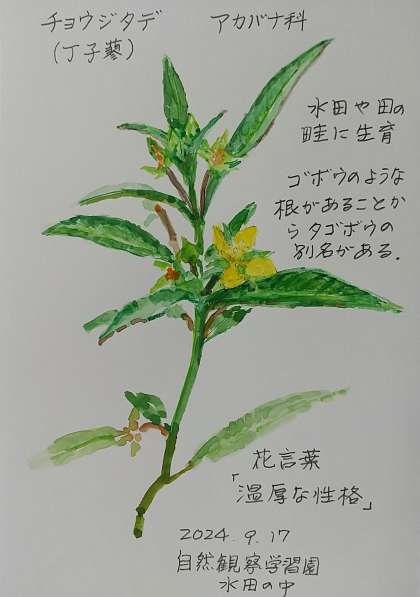 チョウジタデ
(丁子蓼)
アカバナ科
水田や田の
畦に生育
ゴボウのような
根があることか
らタゴボウの
別名がある.
花言葉
「温厚な性格」
2024. 9. 17
自然観察学習園
水田の中